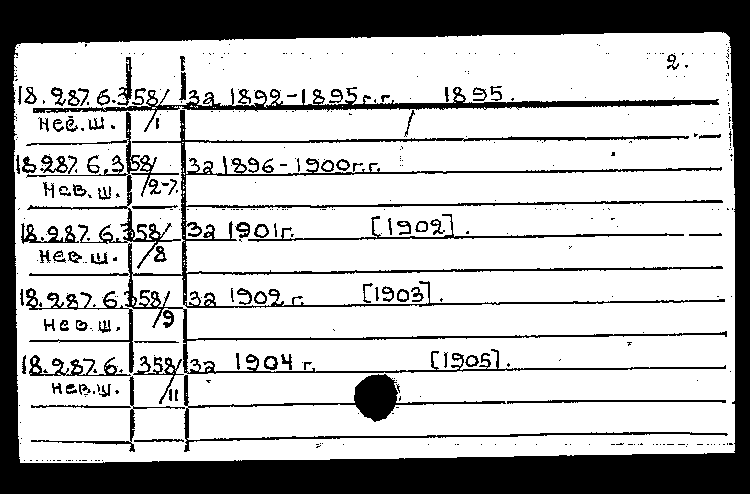 2.
18.287.6.358/ За 1892-1895г.г. 1895.
нев.ш. /1
18.287.6.358/ За 1896-1900г.г.
нев.ш. /2-7.
18.287.6.358/ За 1901г. [1902].
нев.ш. /8
18.287.6.358/ За 1902 г. [1903].
нев.ш. /9
18.287.6.358/ За 1904 г. [1905].
нев.ш. /11